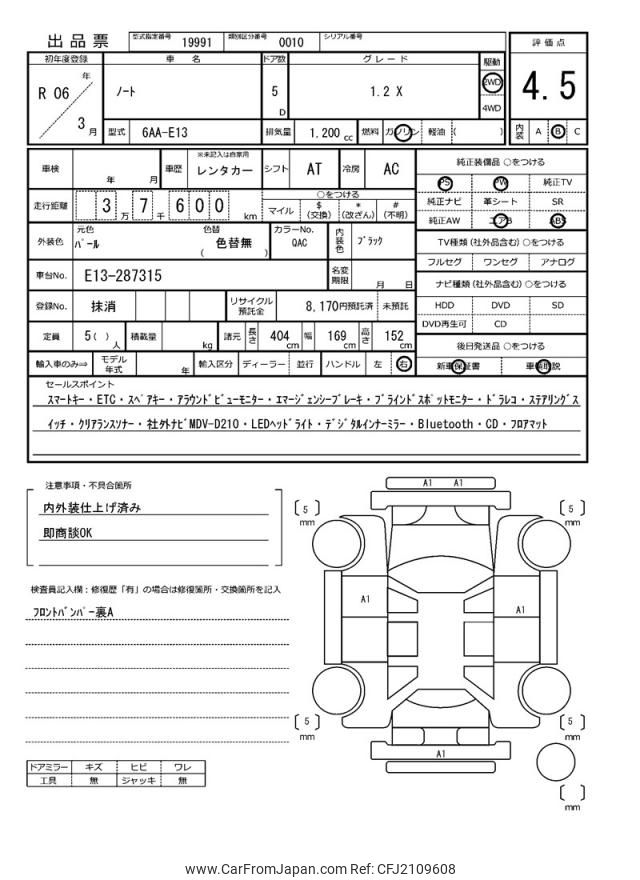 出品票 型式指定番号 19991 類別区分番号 0010 シリアル番号
評価点
4.5
内装 A B C
初年度登録 車名 ドア数 グレード 駆動
R 06 年 3 月 ノート 5 D 1.2 X 2WD 4WD
型式 6AA-E13 排気量 1.200 cc 燃料 ガソリン 軽油 ( )
車検 年 月 車歴 ※未記入は自家用 レンタカー シフト AT 冷房 AC
走行距離 3 万 7 千 6 0 0 km ○をつける
マイル $ (交換) * (改ざん) # (不明)
外装色 元色 パール 色替 色替無 ( ) カラーNo. QAC 内装色 ブラック
車台No. E13-287315 名変期限 月 日
登録No. 抹消 リサイクル預託金 8,170円預託済 未預託
定員 5( )人 積載量 kg 諸元 長さ 404 cm 幅 169 cm 高さ 152 cm
輸入車のみ⇒ モデル年式 年 輸入区分 ディーラー 並行 ハンドル 左 右
純正装備品 ○をつける
PS PW 純正TV
純正ナビ 革シート SR
純正AW エアB ABS
TV種類(社外品含む)○をつける
フルセグ ワンセグ アナログ
ナビ種類(社外品含む)○をつける
HDD DVD SD
DVD再生可 CD
後日発送品 ○をつける
新車保証書 車輌取説
セールスポイント
スマートキー・ETC・スペアキー・アラウンドビューモニター・エマージェンシーブレーキ・ブラインドスポットモニター・ドラレコ・ステアリングス
イッチ・クリアランスソナー・社外ナビMDV-D210・LEDヘッドライト・デジタルインナーミラー・Bluetooth・CD・フロアマット
注意事項・不具合箇所
内外装仕上げ済み
即商談OK
検査員記入欄:修復歴「有」の場合は修復箇所・交換箇所を記入
フロントバンパー裏A
A1 A1
5 mm
5 mm
A1
A1
5 mm
5 mm
A1
mm
ドアミラー キズ ヒビ ワレ
工具 無 ジャッキ 無
www.CarFromJapan.com Ref: CFJ2109608